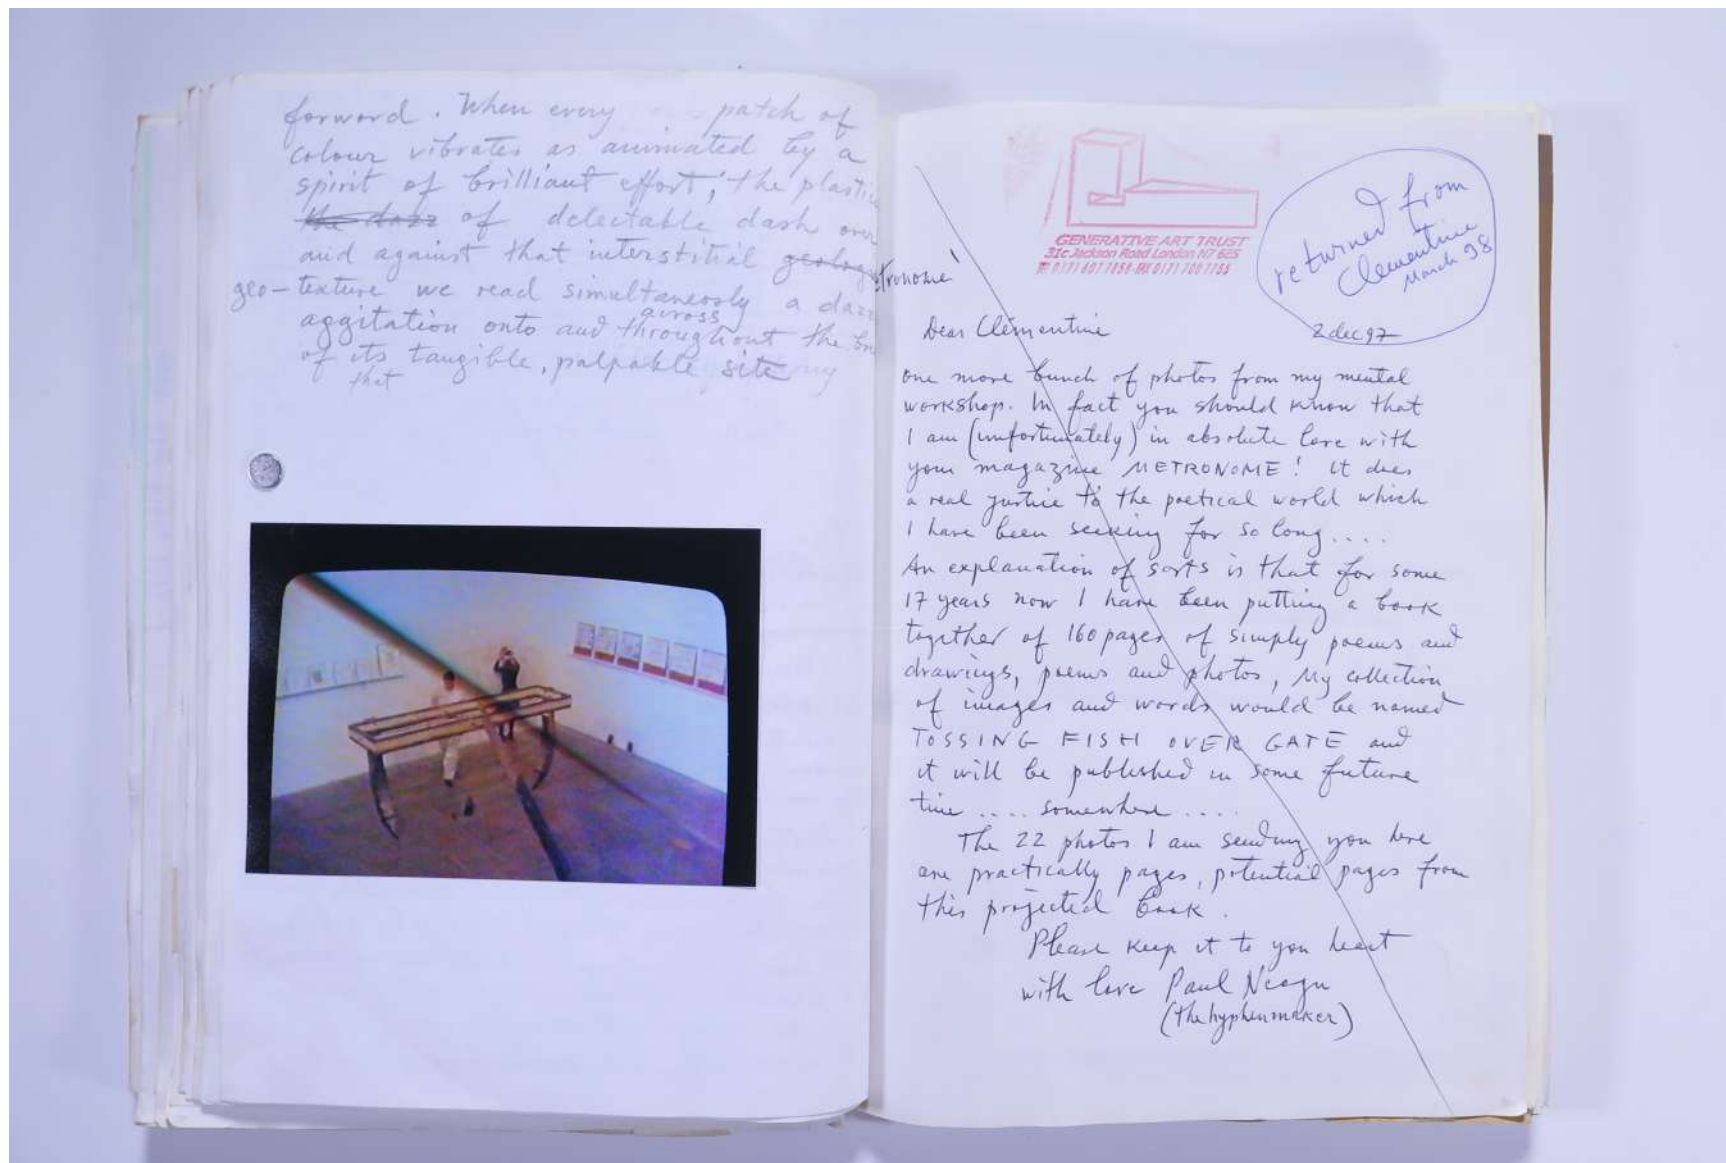 forword. When every patch of
colour vibrates as animated by a
spirit of brilliant effort, the plastic
the dazz of delectable dash over
and against that interstitial
geo-texture we read simultaneosly a
across
aggitation onto and throughout the
of its tangible, palpable site my
that
GENERATIVE ART TRUST
31c Jackson Road London N7 6ES
returned from
Clementine
March 98
etronome'
Dear Clémentine
2 dec. 97
one more bunch of photos from my mental
workshop. In fact you should know that
I am (unfortunately) in absolute love with
your magazine METRONOME! It does
a real justice to the poetical world which
I have been seeking for so long....
An explanation of sorts is that for some
17 years now I have been putting a book
together of 160 pages of simply poems and
drawings, poems and photos, My collection
of images and words would be named
TOSSING FISH OVER GATE and
it will be published in some future
time .... somewhere ....
The 22 photos I am sending you here
are practically pages, potential pages from
this projected book.
Please keep it to you heart
with love Paul Neagu
(the hyphenmaker)